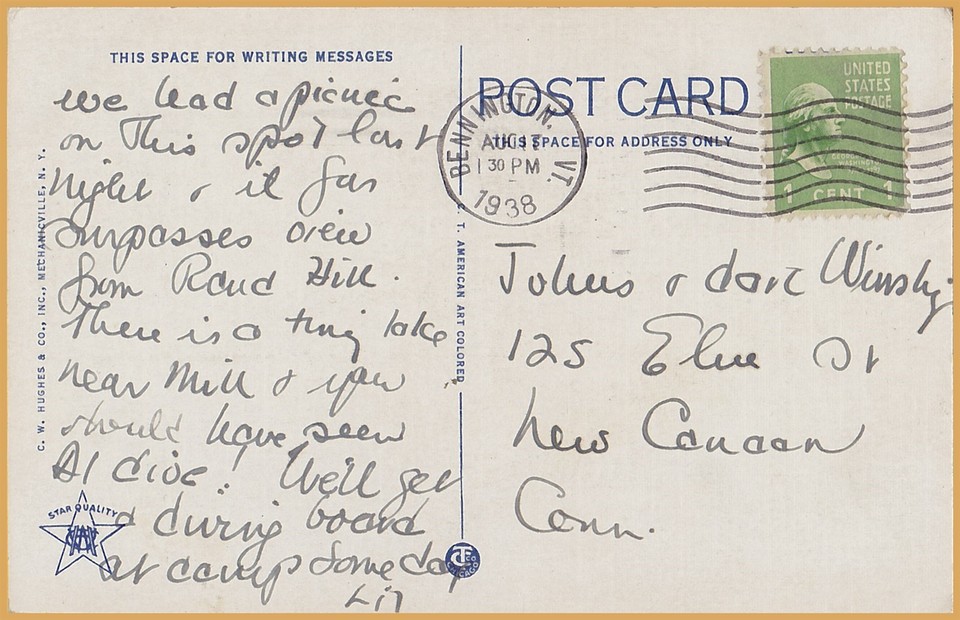 THIS SPACE FOR WRITING MESSAGES
we had a picnic
on This spot last
night & it far
surpasses view
from Rand Hill.
There is a tiny lake
near Mill & you
should have seen
Al dive! We'll get
a diving board
at camp some day
C. W. HUGHES & CO., INC., MECHANICVILLE, N. Y.
STAR QUALITY
C. T. AMERICAN ART COLORED
CHICAGO
POST CARD
THIS SPACE FOR ADDRESS ONLY
BENNINGTON, VT.
AUG 17
1 30 PM
1938
UNITED
STATES
POSTAGE
GEORGE
WASHINGTON
1 CENT 1
& Dave
125 Elm St
New Canaan
Conn.